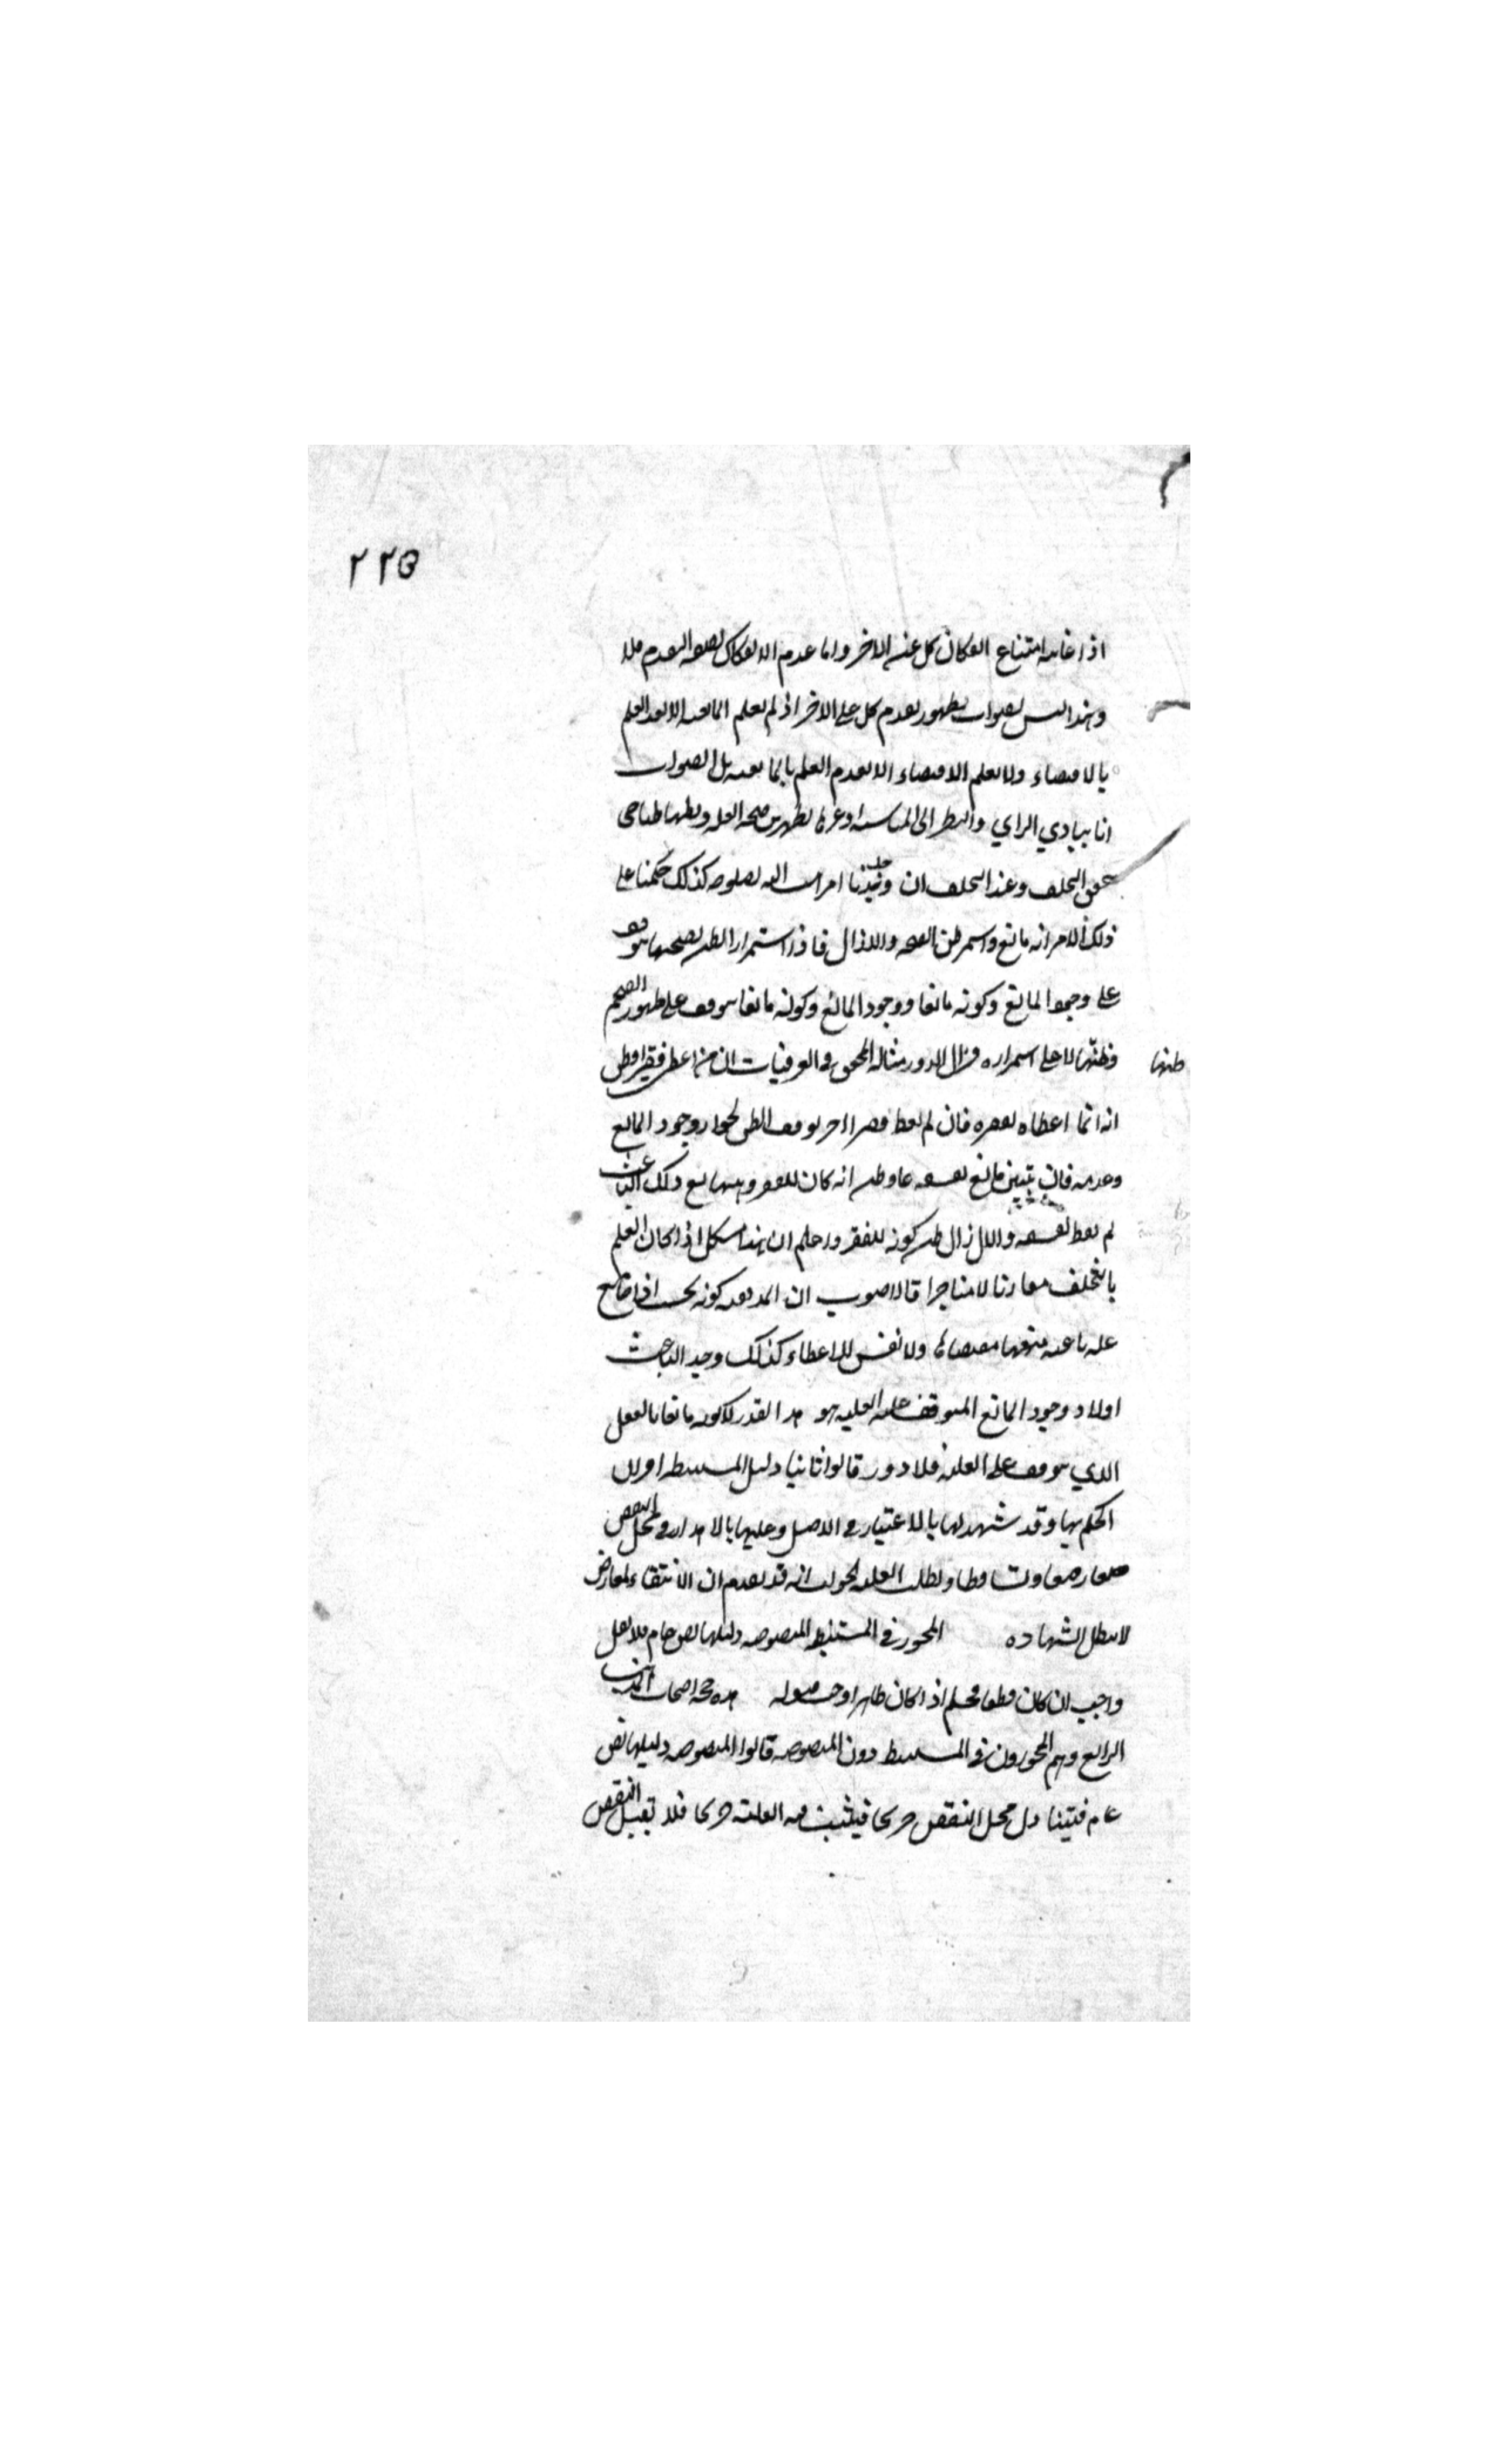 ٢٢٥
اذ غايته امتناع انفكاك كل عن الاخر واما عدم الانفكاك بصفة التقدم فلا
وهذا ليس بصواب لظهور تقدم كل على الاخر اذ لم يعلم المانعية الا بعد العلم
بالاقتضاء ولا يعلم الاقتضاء الا بعدم العلم بالمانعية بل الصواب
انا ببادي الراي والنظر الى المناسبة او غيرها يظهر صحة العلة ونظنها ظنا حتى
نتحقق التخلف وعند التخلف ان وجدنا امرا كذلك حكمنا على
ذلك الامر انه مانع واستمر ظن الصحة والا زال فاذا استمرار الظن بصحتها يتوقف
على وجود المانع وكونه مانعا ووجود المانع وكونه مانعا يتوقف على ظهور الصحة
وظنها لا على استمراره فزال الدور مثاله المحقق في العرفيات ان من اعطى فقيرا فظن
ظنها
انه انما اعطاه لفقره فان لم يعط فقيرا اخر توقف الظن لجواز وجود المانع
وعدمه فان تبين مانع لفسقه عاد ظن انه كان للفقر ومنها منع ذلك الباعث
لم يعط لفسقه والا زال ظن كونه للفقر واعلم ان هذا مشكل اذا كان العلم
بالتخلف مقارنا لا متأخرا فالاصوب ان المانعية كونه بحيث اذا جامع
علة باعثة منعها مقتضاها ولا نفس الاعطاء كذلك وجد الباعث
اولا ووجود المانع المتوقف عليه العلية هو هذا القدر لا كونه مانعا بالفعل
الذي يتوقف على العلية فلا دور قالوا ثانيا دليل المستنبطة اقتران
الحكم بها وقد شهد لها بالاعتبار في الاصل وعليها بالاهدار في محل النقض
فتعارضا وتساقطا وبطلت العلية الجواب انه قد تقدم ان الانتفاء لمعارض
لا يبطل الشهادة المجوز في المستنبطة المنصوصة دليلها نص عام فلا يقبل
واجيب ان كان قطعيا فمسلم اذا كان ظاهرا وجب قبوله هذه حجة اصحاب المذهب
الرابع وهم المجوزون في المستنبطة دون المنصوصة قالوا المنصوصة دليلها نص
عام فيتناول محل النقض صريحا فيثبت فيه العلية صريحا فلا تقبل النقض